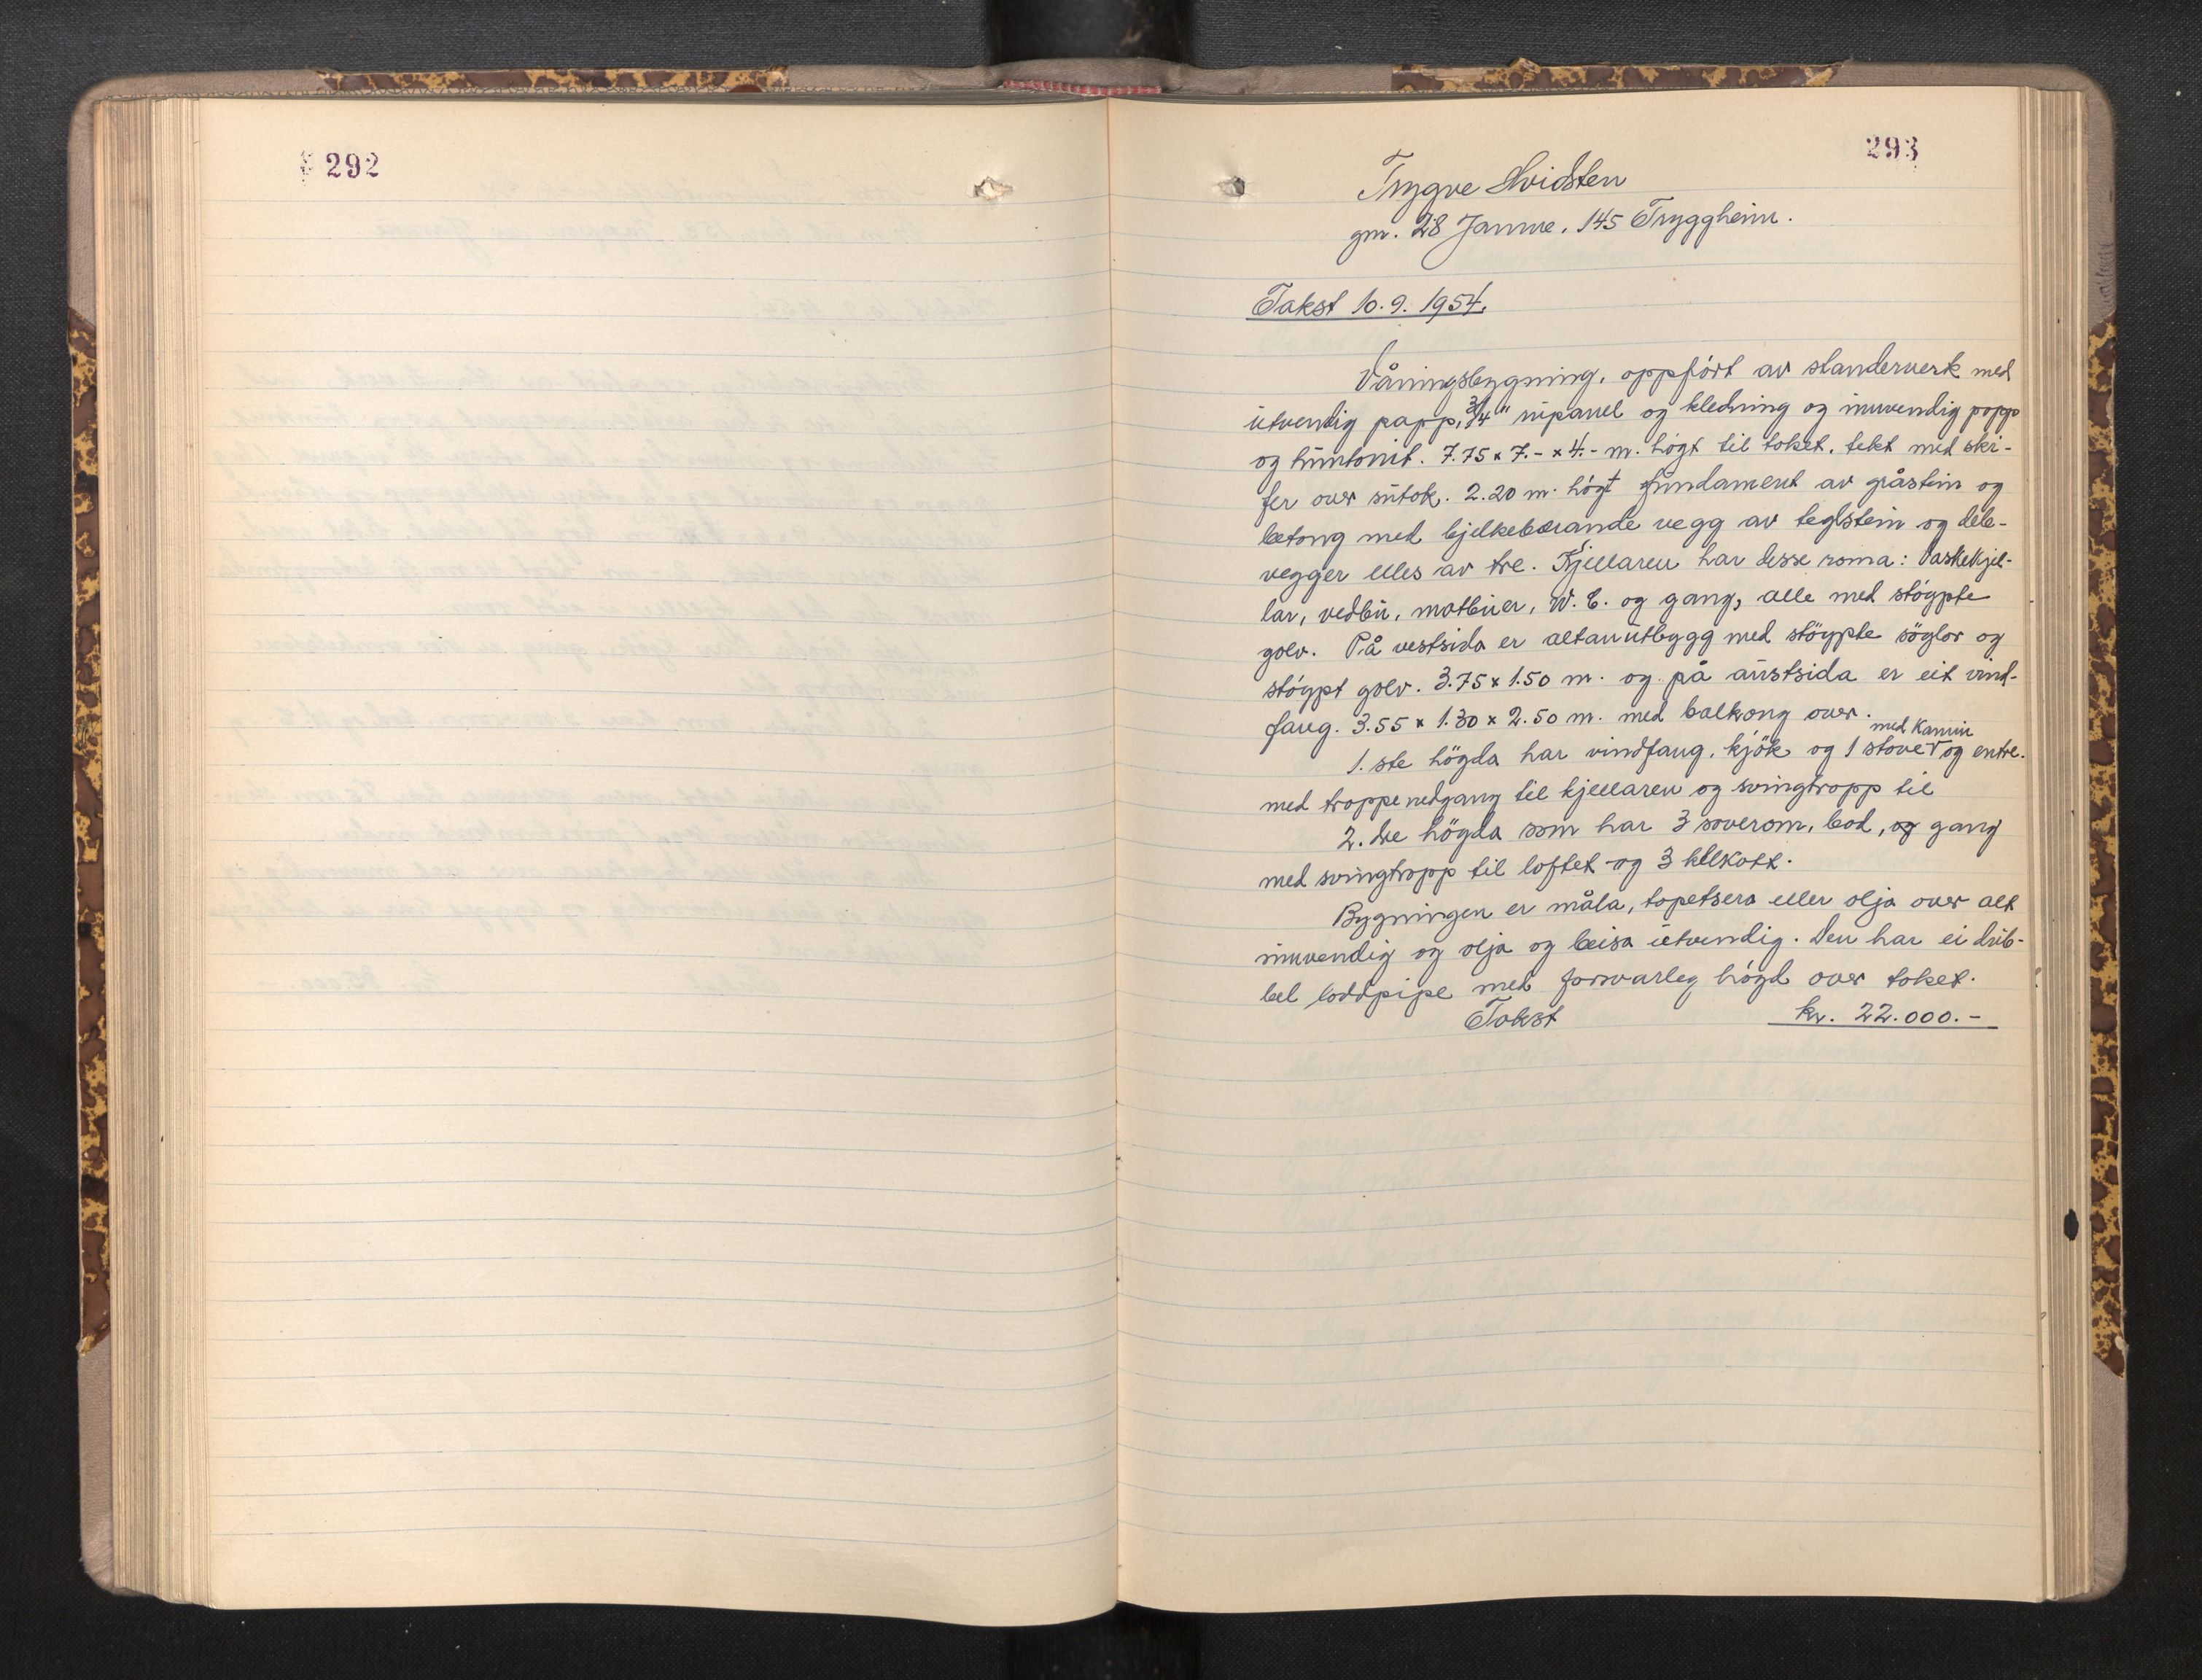 292
293
Trygve Hvidsten
gm. 28 Janne, 145 Tryggheim.
Takst 10.9.1954.
Våningsbygning, oppført av standerverk med
utvendig papp, 3/4" rupanel og kledning og innvendig papp
og huntonit. 7.75 x 7.- x 4.- m. høgt til taket, tekt med ski-
fer over sutak. 2.20 m. høgt fundament av gråstein og
betong med bjelkebærande vegg av teglstein og dele-
vegger elles av tre. Kjellaren har desse roma: Vaskekjel-
lar, vedbu, matbuer, W.C. og gang, alle med støypte
golv. På vestsida er altanutbygg med støypte søylor og
støypt golv. 3.75 x 1.50 m. og på austsida er eit vind-
fang. 3.55 x 1.30 x 2.50 m. med balkong over.
med Kamin
1. ste høgda har vindfang, kjøk og 1 stove og entre.
med trappenedgang til kjellaren og svingtrapp til
2. dre høgda som har 3 soverom, bod, og gang
med svingtrapp til loftet og 3 klekott.
Bygningen er måla, tapetsera eller olja over alt
innvendig og olja og beisa utvendig. Den har ei dub-
bel loddpipe med forsvarleg høgd over taket.
Takst kr. 22.000.-